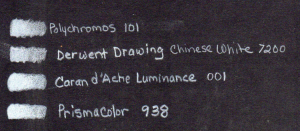 Polychromos 101
Derwent Drawing Chinese White 7200
Caran d'Ache Luminance 001
Prismacolor 938